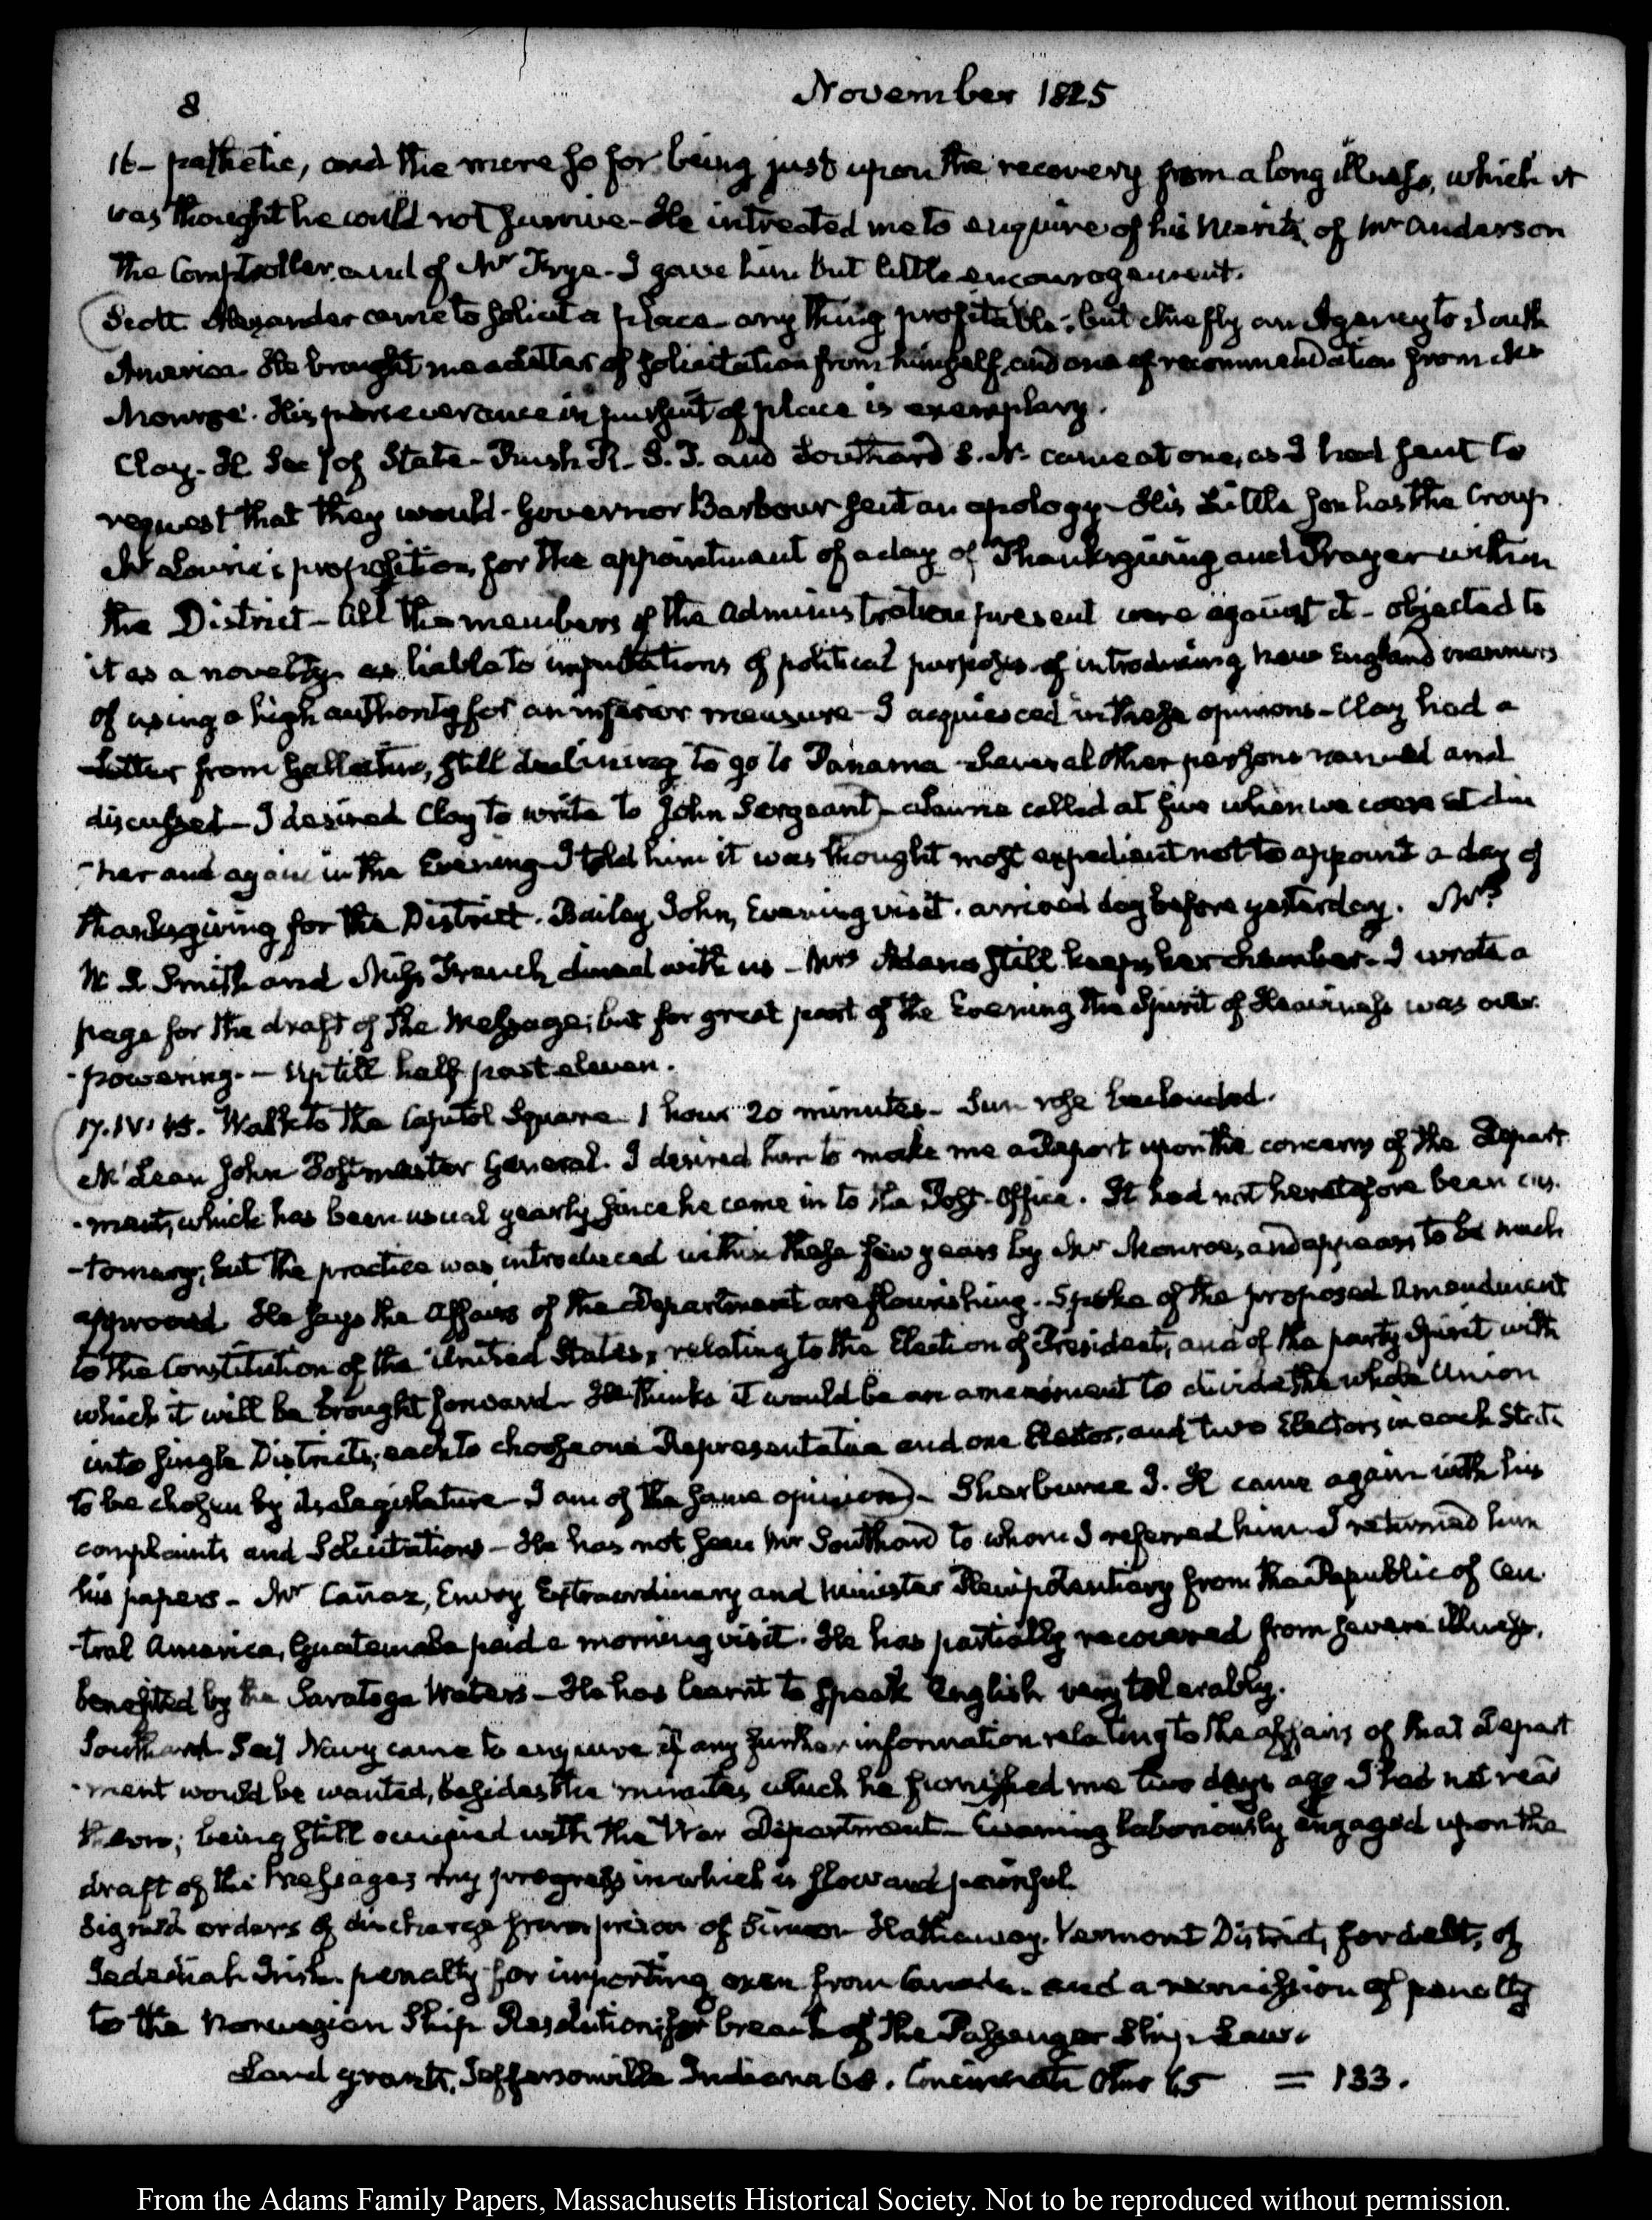 8
November 1825
16 - pathetic, and the more so for being just upon the recovery from a long illness, which it
was thought he could not survive - He intreated me to enquire of his merits, of Mr Anderson
the Comptroller, and of Mr Frye - I gave him but little encouragement.
Scott Alexander came to solicit a place - any thing profitable; but chiefly an Agency to South
America. He brought me a Letter of solicitation from himself, and one of recommendation from Mr
Monroe. His perseverance in pursuit of place is exemplary.
Clay - H. Secy of State - Rush R. S. T. and Southard S. N. came at one, as I had sent to
request that they would - Governor Barbour sent an apology - His Little Son has the Croup.
Mr Laurie's proposition, for the appointment of a day of Thanksgiving and Prayer within
the District - All the members of the Administration present were against it - objected to
it as a novelty - as liable to imputations of political purposes - of introducing New England manners
of using a high authority for an inferior measure - I acquiesced in these opinions - Clay had a
Letter from Gallatin, still declining to go to Panama. Several other persons named and
discussed - I desired Clay to write to John Sergeant) - Laurie called at five when we were at din
-ner and again in the Evening - I told him it was thought most expedient not to appoint a day of
thanksgiving for the District. Bailey John, Evening visit. arrived day before yesterday. Mrs
W. S. Smith and Miss French dined with us - Mrs Adams still keeps her chamber - I wrote a
page for the draft of the Message; but for great part of the Evening the Spirit of Heaviness was over
-powering. - Up till half past eleven.
17. IV: 45. Walk to the Capitol Square 1 hour 20 minutes - Sun rose beclouded.
McLean John Postmaster General. I desired him to make me a Report upon the concerns of the Depart
-ment, which has been usual yearly since he came in to the Post-Office. It had not heretofore been cus.
-tomary; but the practice was introduced within these few years by Mr Monroe, and appears to be much
approved. He says the affairs of the Department are flourishing. Spoke of the proposed Amendment
to the Constitution of the United States, relating to the Election of President, and of the party Spirit with
which it will be brought forward - He thinks it would be an amendment to divide the whole Union
into single Districts; each to choose one Representative and one Elector, and two Electors in each State
to be chosen by its Legislature - I am of the same opinion) - Sherburne J. H. came again with his
complaints and Solicitations - He has not seen Mr Southard to whom I referred him - I returned him
his papers - Mr Cañaz, Envoy Extraordinary and Minister Plenipotentiary from the Republic of Cen
-tral America, Guatemala paid a morning visit. He has partially recovered from severe illness,
benefited by the Saratoga Waters - He has learnt to speak English very tolerably.
Southard Secy Navy came to enquire if any further information relating to the affairs of that Depart
-ment would be wanted, besides the minutes which he furnished me two days ago I had not read
them; being still occupied with the War Department - Evening laboriously engaged upon the
draft of the Message; my progress in which is slow and painful.
Signed orders of discharge from prison of Simeon Hathaway, Vermont District, for debt; of
Jedediah Irish. penalty for importing oxen from Canada. and a remission of penalty
to the Norwegian Ship Restoration; for breach of the Passenger Ship Law.
Land grants. Jeffersonville Indiana 68. Cincinnati Ohio 65 = 133.
From the Adams Family Papers, Massachusetts Historical Society. Not to be reproduced without permission.